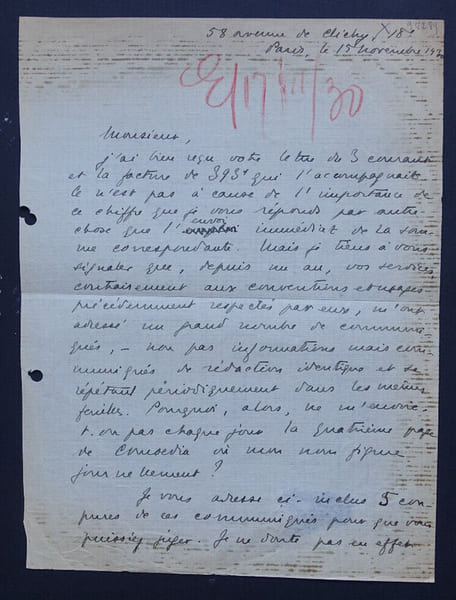 58 avenue de Clichy, 18e
Paris, le 15 novembre 1930
E/17/11/30
Monsieur,
j'ai bien reçu votre lettre du 3 courant
et la facture de 393f qui l'accompagnait.
Ce n'est pas à cause de l'importance de
ce chiffre que je vous réponds par autre
chose que l'envoi immédiat de la som-
me correspondante. Mais je tiens à vous
signaler que, depuis un an, vos services
contrairement aux conventions et usages
précédemment respectés par eux, m'ont
adressé un grand nombre de communi-
qués, - non pas informations mais com-
muniqués de rédaction identique et se
répétant périodiquement dans les mêmes
feuilles. Pourquoi, alors, ne m'envoie-
t-on pas chaque jour la quatrième page
de Comoedia où mon nom figure
journellement ?
Je vous adresse ci-inclus 5 cou-
pures de ces communiqués pour que vous
puissiez juger. Je ne doute pas en effet